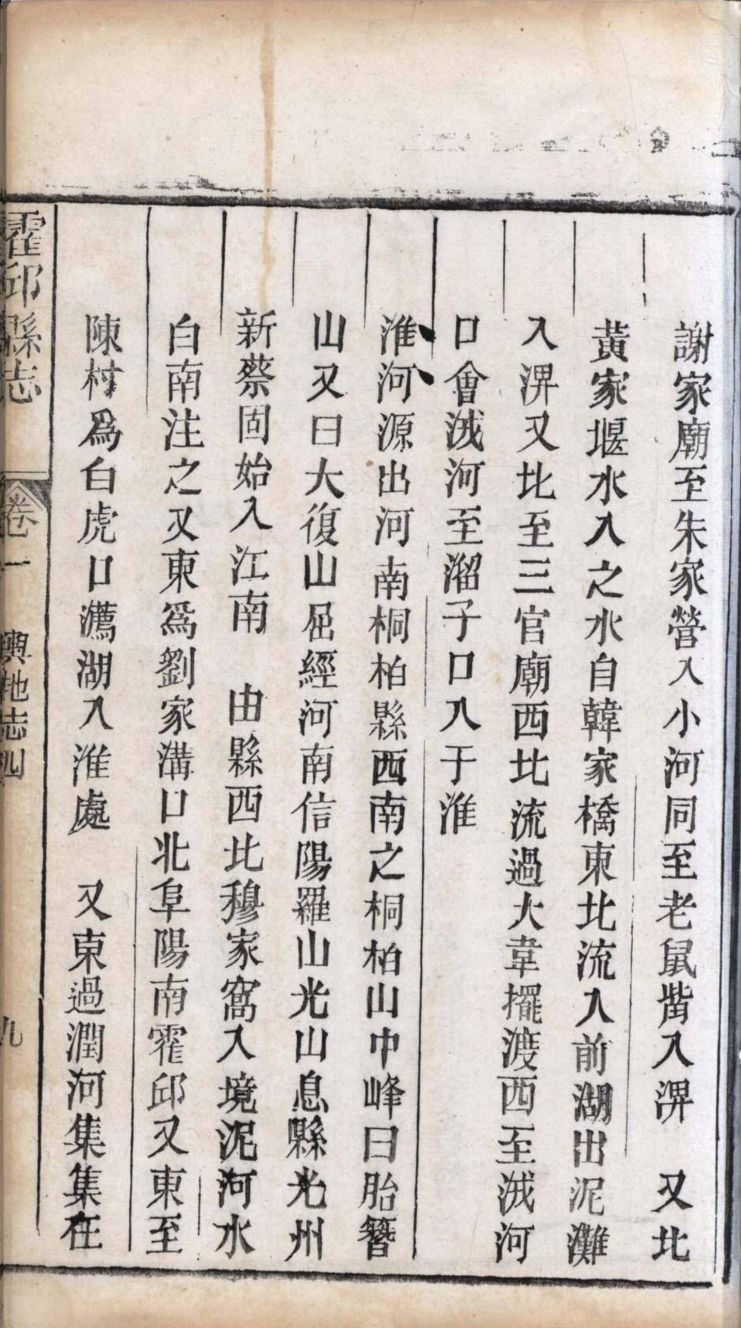 謝家廟至朱家營入小河同至老鼠㘅入淠　又北
黃家堰水入之水自韓家橋東北流入前湖出泥灘
入淠又北至三官廟西北流過大韋擺渡西至㳦河
口會㳦河至溜子口入于淮
淮河源出河南桐柏縣西南之桐柏山中峰曰胎簪
山又曰大復山屈經河南信陽羅山光山息縣光州
新蔡固始入江南　由縣西北穆家窩入境泥河水
自南注之又東爲劉家溝口北阜陽南霍邱又東至
陳村爲白虎口灊湖入淮處　又東過潤河集集在
霍邱縣志　卷一　輿地志四　九